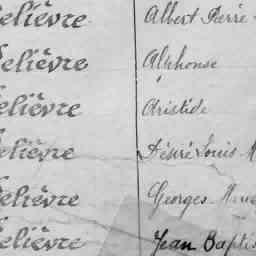 elièvre Albert Pierre
elièvre Alphonse
elièvre Aristide
elièvre Désiré Louis M
elièvre Georges
elièvre Jean Baptis